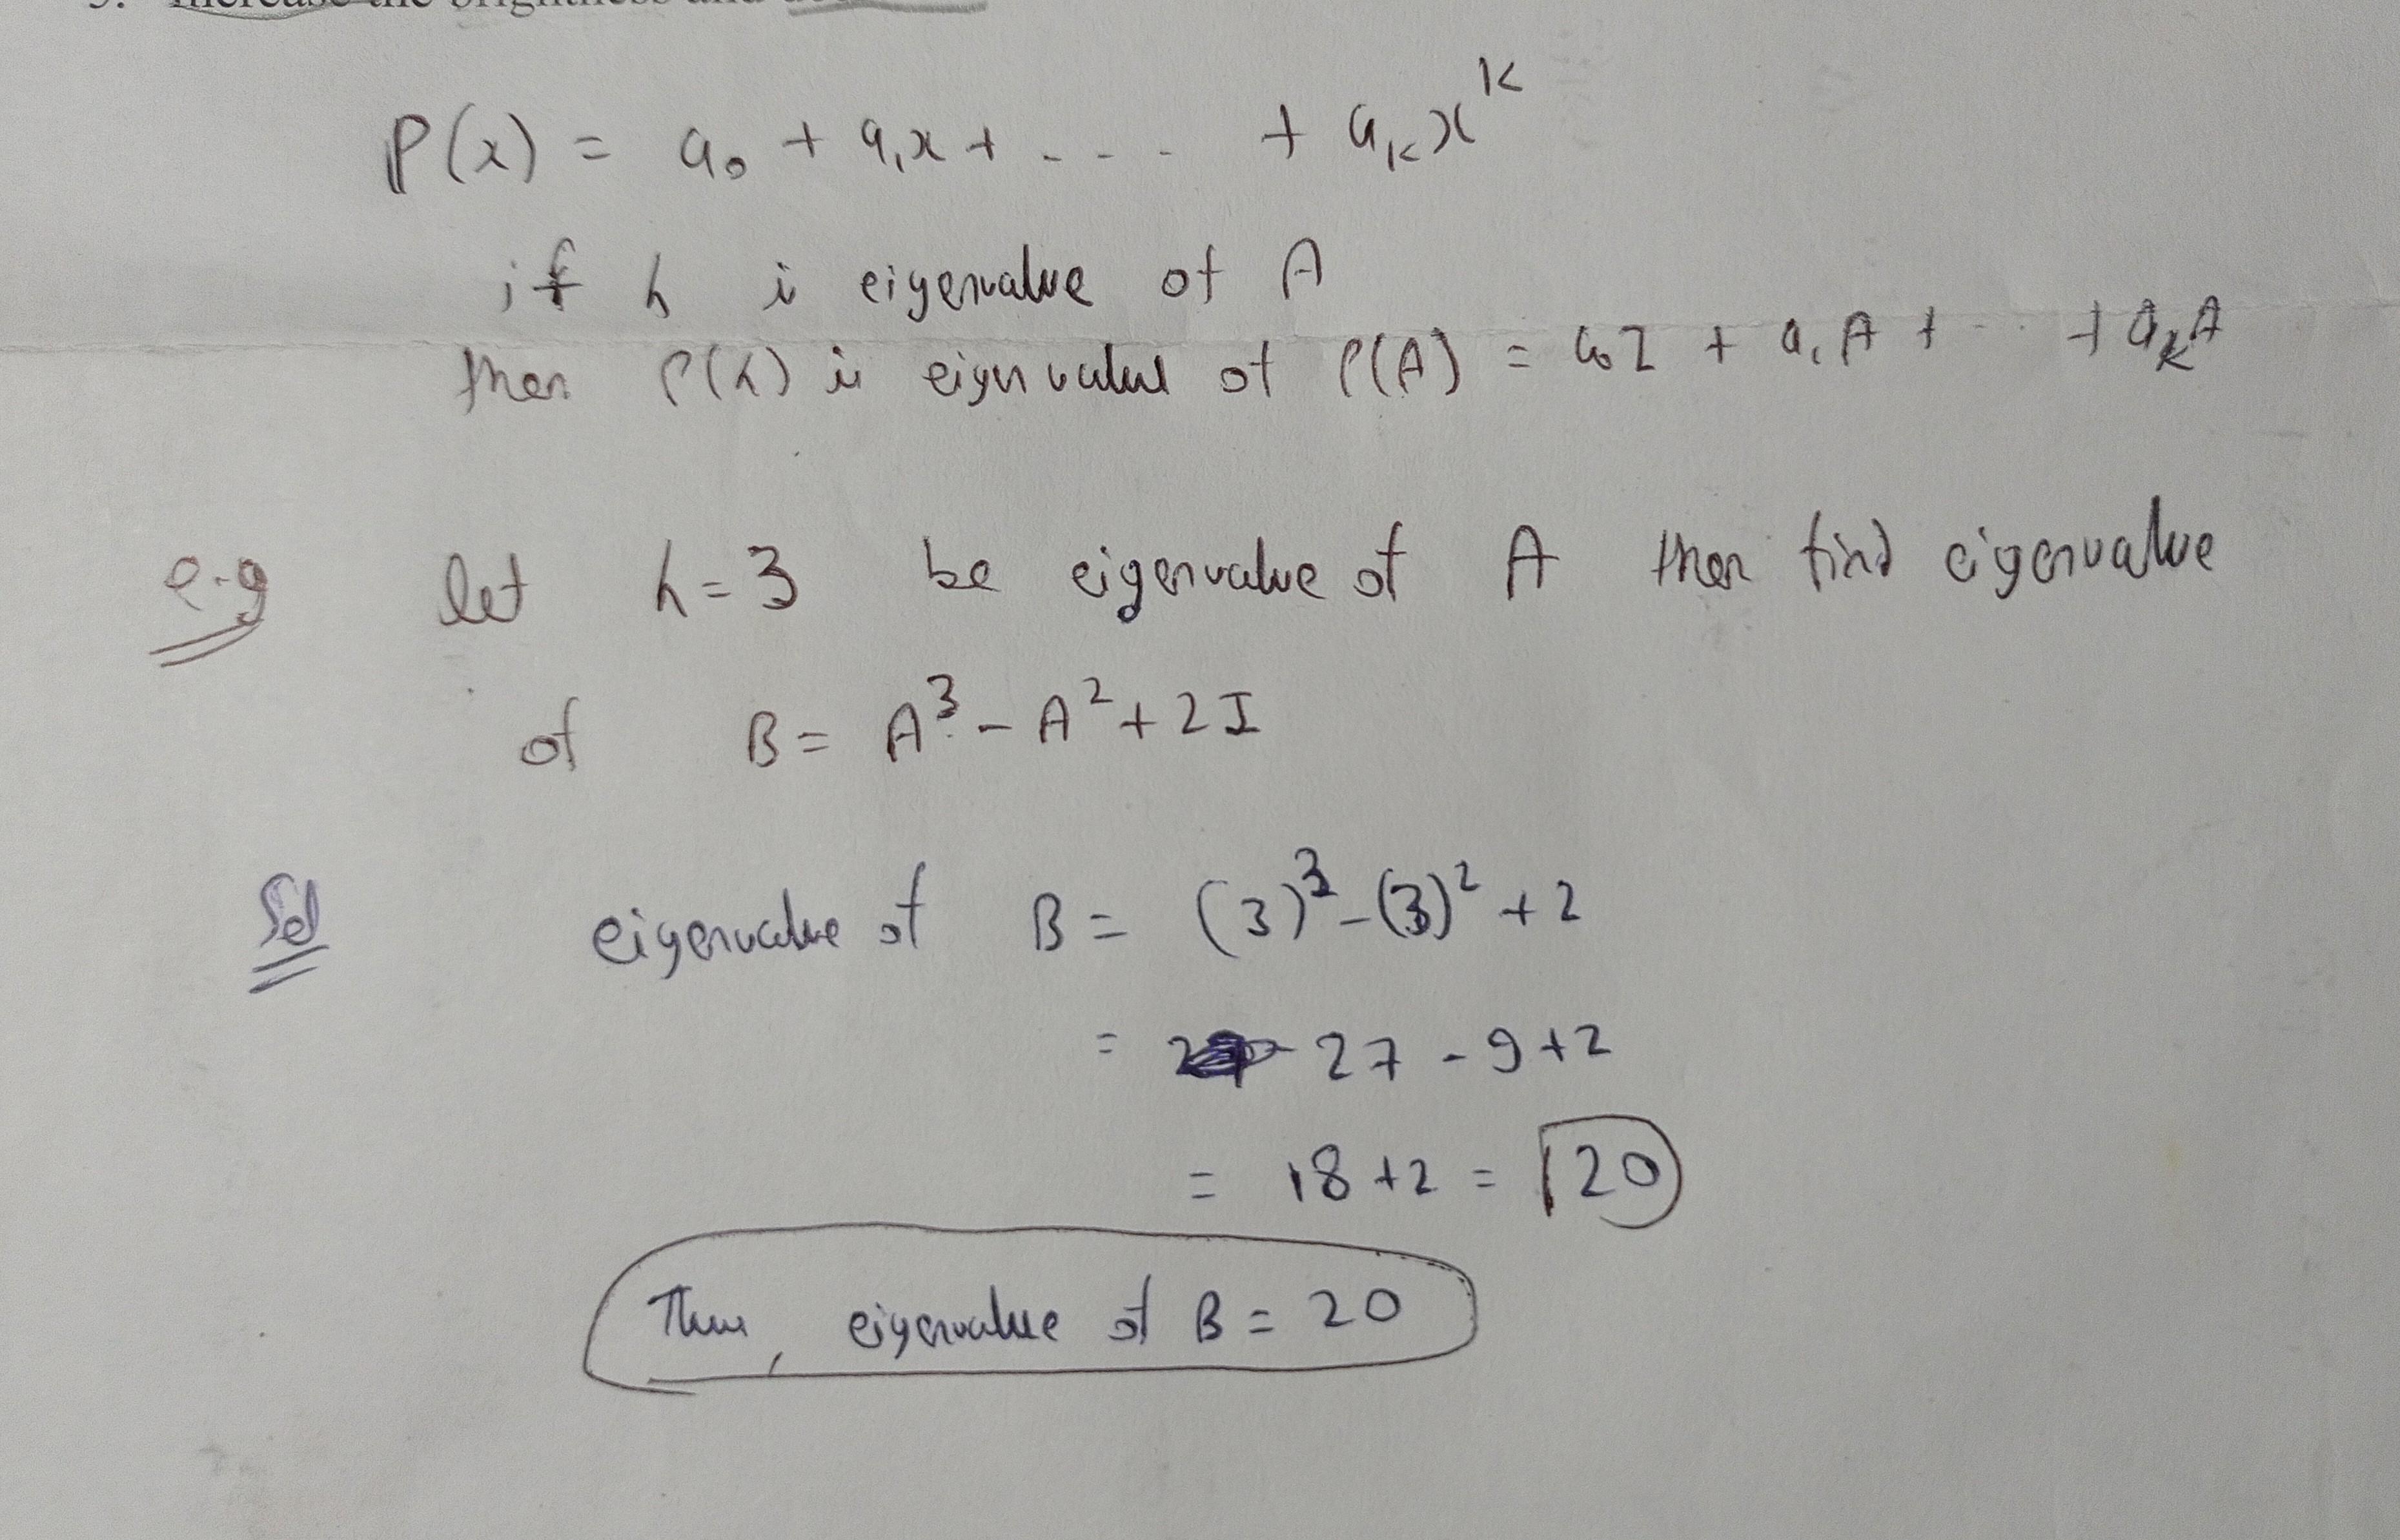 5. Increase the brightness and
P(x) = a₀ + a₁x + - - - + aₖxᴷ
if λ is eigenvalue of A
then P(λ) is eigenvalue of P(A) = a₀I + a₁A + ... + aₖA
e.g let λ=3 be eigenvalue of A then find eigenvalue
of B = A³ - A² + 2I
Sol eigenvalue of B = (3)³ - (3)² + 2
= 27 - 9 + 2
= 18 + 2 = 20
Thus, eigenvalue of B = 20